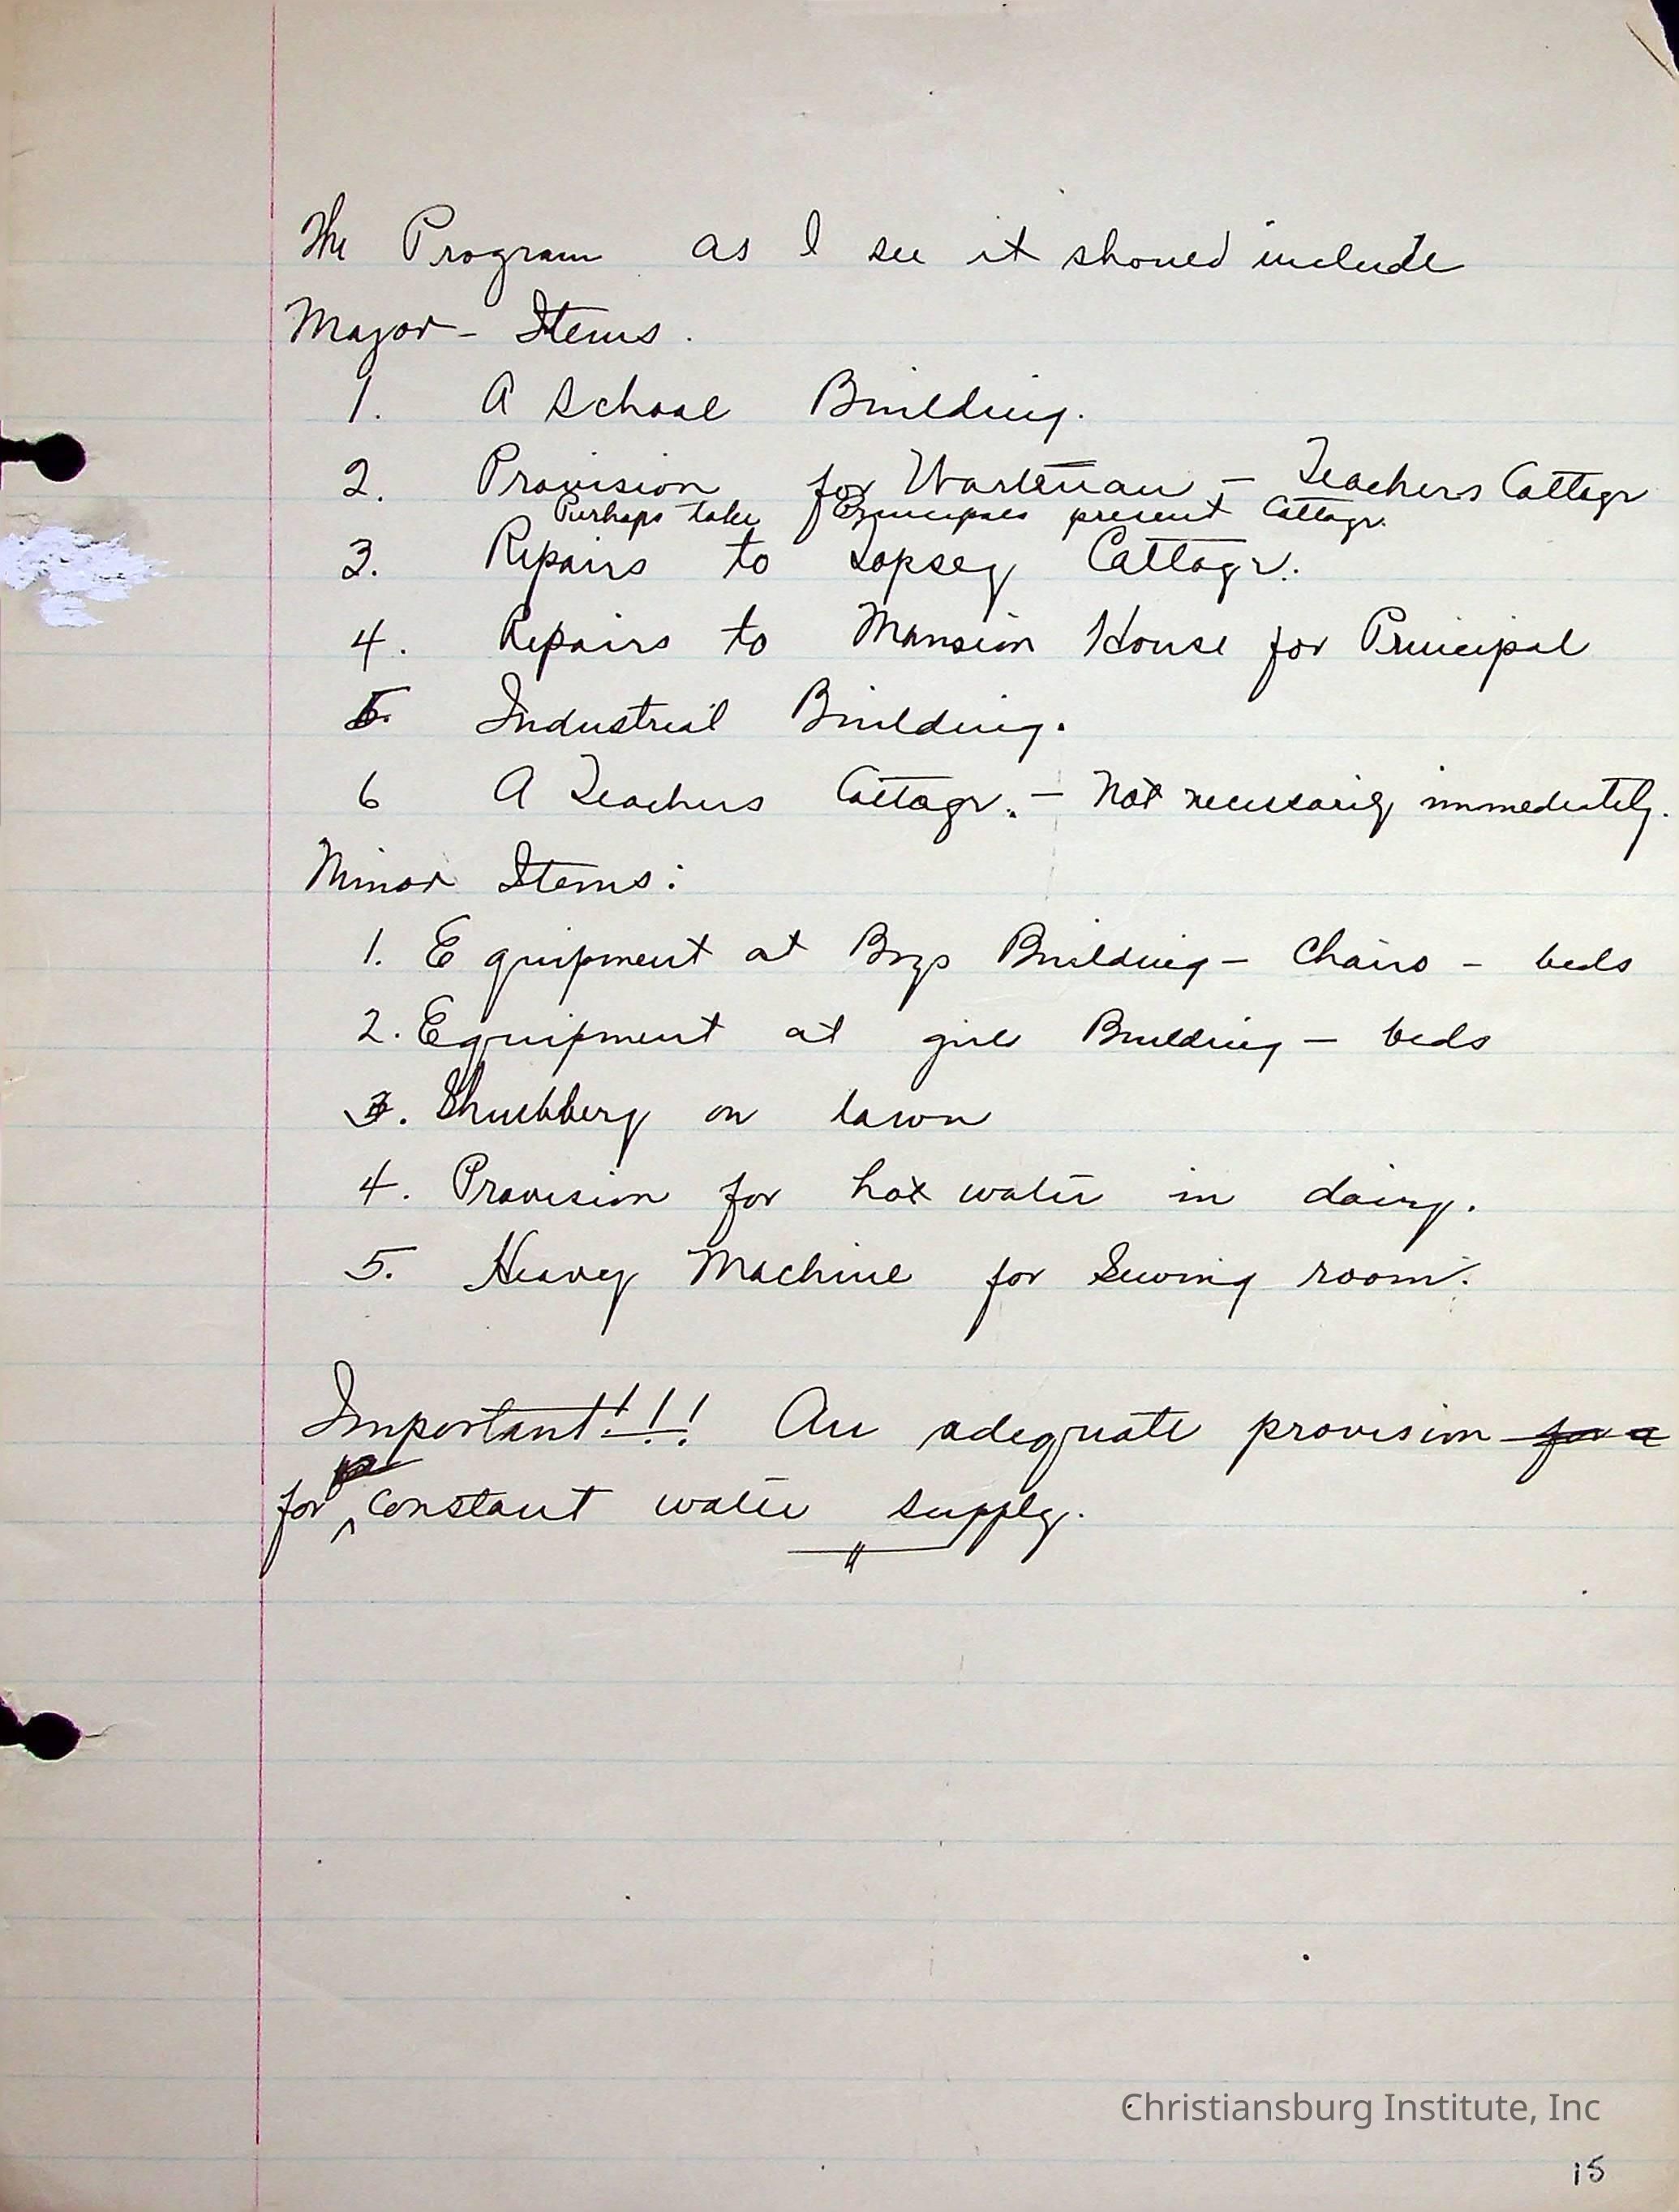 The Program as I see it should include
Major - Items.
1. A School Building.
2. Provision for Wartman - Teachers Cottage
Perhaps take Principals present Cottage.
3. Repairs to Cottage.
4. Repairs to Mansion House for Principal
5. Industrial Building.
6 A Teachers Cottage. - Not necessarily immediately.
Minor Items:
1. Equipment at Boys Building - Chairs - beds
2. Equipment at girls Building - beds
3. Shrubbery on lawn
4. Provision for hot water in dairy.
5. Heavy Machine for Sewing room.
Important!!! An adequate provision for a
for constant water supply.
Christiansburg Institute, Inc
15